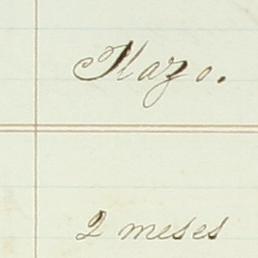 Plazo.
2 meses